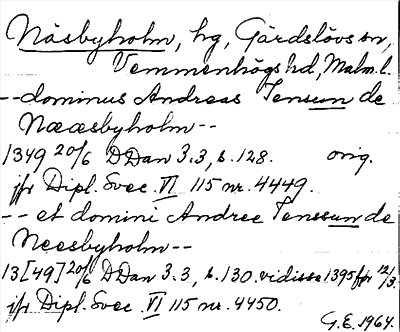 Näsbyholm, hg, Gärdslövs sn,
Vemmenhögs hd, Malm. l.
--dominus Andreas Jenssun de
Næesbyholm--
1349 20/6 DDan 3.3, s. 128. orig.
jfr Dipl. Svec. VI 115 nr. 4449.
-- et domini Andree Jenssun de
Neesbyholm--
13[49] 20/6 DDan 3.3, s. 130. vidisse 1395 12/3.
jfr Dipl. Svec. VI 115 nr. 4450.
G.E. 1964.